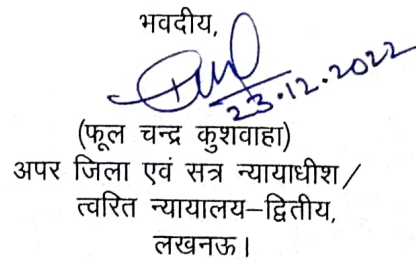 भवदीय,
23.12.2022
(फूल चन्द्र कुशवाहा)
अपर जिला एवं सत्र न्यायाधीश/
त्वरित न्यायालय–द्वितीय,
लखनऊ।